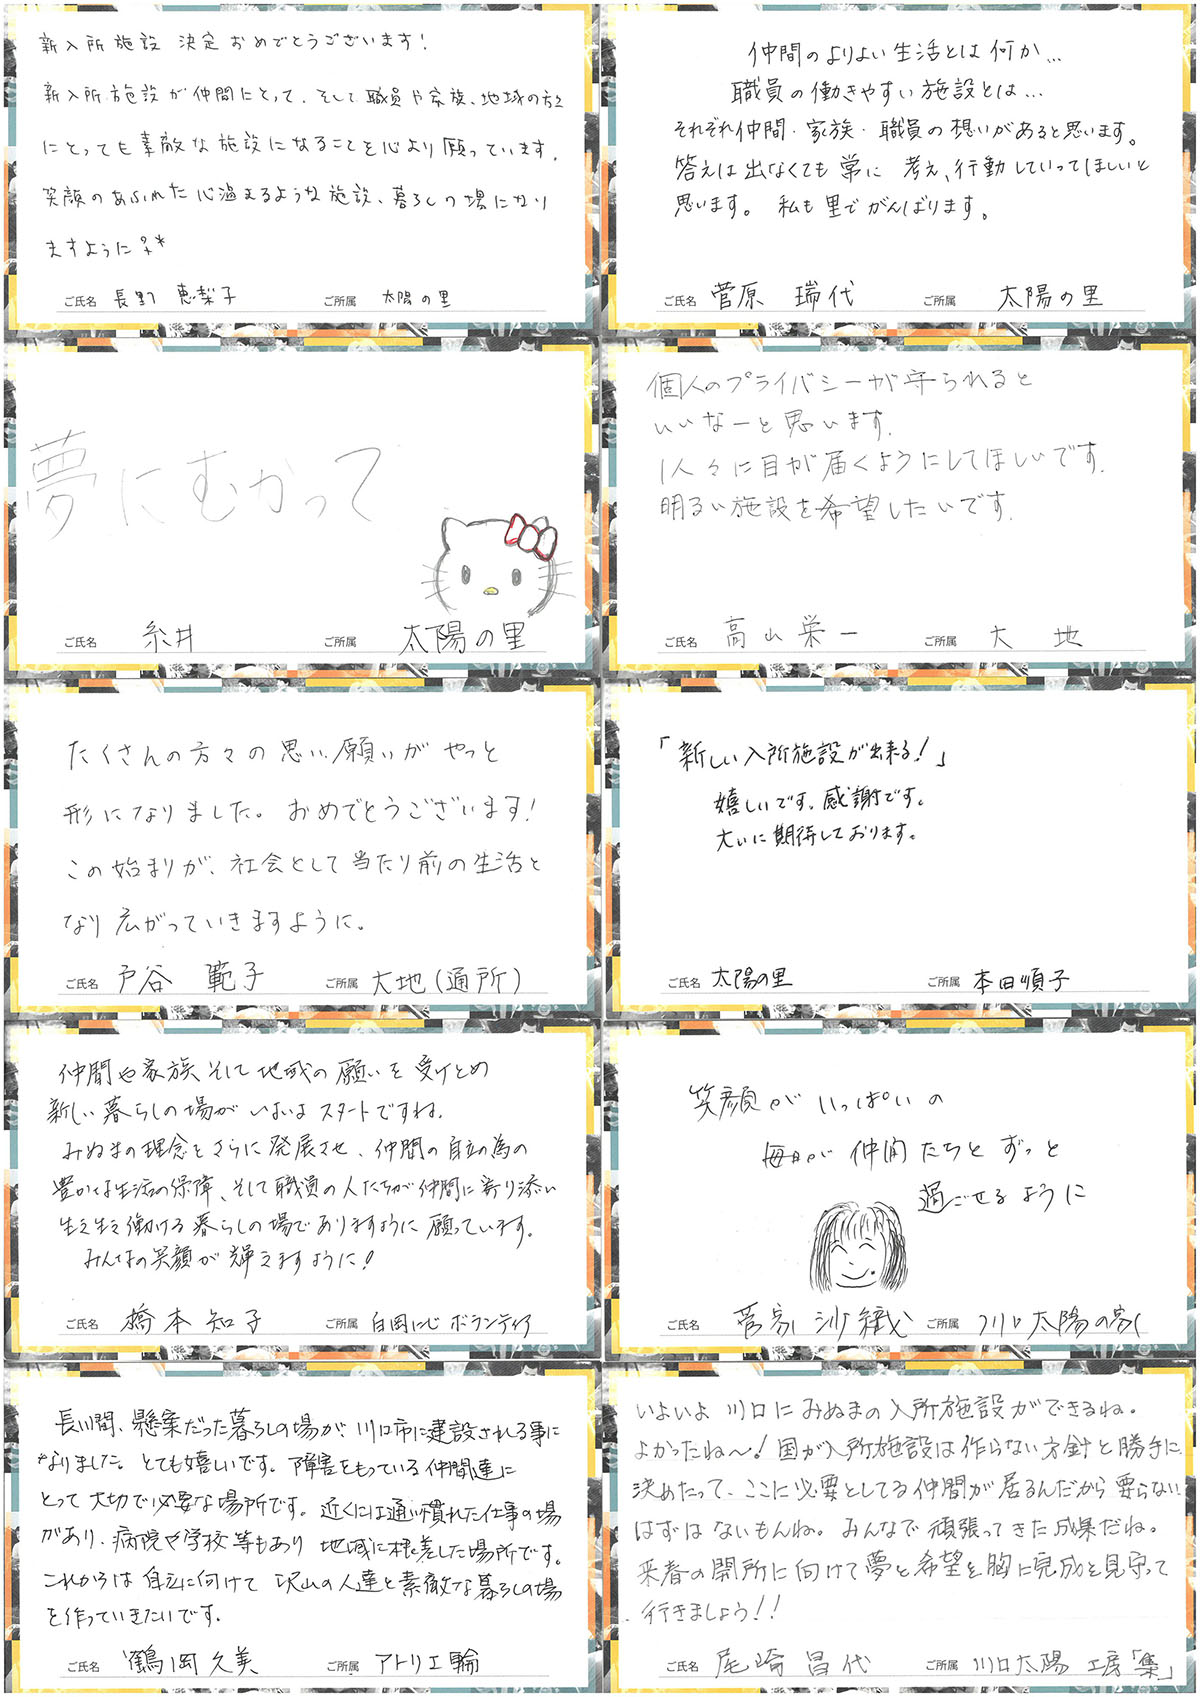 新入所施設 決定おめでとうございます!
新入所施設が仲間にとって、そして職員や家族、地域の方々
にとっても素敵な施設になることを心より願っています。
笑顔のあふれた心温まるような施設、暮らしの場になり
ますように
ご氏名 長野 恵梨子 ご所属 太陽の里
仲間のよりよい生活とは何か…
職員の働きやすい施設とは…
それぞれ仲間・家族・職員の想いがあると思います。
答えは出なくても常に 考え、行動していってほしいと
思います。 私も里でがんばります。
ご氏名 菅原 瑞代 ご所属 太陽の里
夢にむかって
ご氏名 糸井 ご所属 太陽の里
個人のプライバシーが守られると
いいなーと思います。
1人々に目が届くようにしてほしいです。
明るい施設を希望したいです。
ご氏名 高山 栄一 ご所属 大地
たくさんの方々の思い、願いがやっと
形になりました。おめでとうございます!
この始まりが、社会として当たり前の生活と
なり広がっていきますように。
ご氏名 戸谷 範子 ご所属 大地(通所)
「新しい入所施設が出来る!」
嬉しいです。感謝です。
大いに期待しております。
ご氏名 太陽の里 ご所属 本田順子
仲間や家族そして地域の願いを受けとめ
新しい暮らしの場がいよいよスタートですね。
みぬまの理念をさらに発展させ、仲間の自立の為の
豊かな生活の保障、そして職員の人たちが仲間に寄り添い
生き生き働ける暮らしの場でありますように願っています。
みんなの笑顔が輝きますように!
ご氏名 橋本 知子 ご所属 白岡にじ ボランティア
笑顔がいっぱいの
毎日が仲間たちとずっと
過ごせるように
ご氏名 沙織 ご所属 川口太陽の家
長い間、懸案だった暮らしの場が、川口市に建設される事に
なりました。とても嬉しいです。障害をもっている仲間達に
とって大切で必要な場所です。近くには通い慣れた仕事の場
があり、病院や学校等もあり 地域に根差した場所です。
これからは自立に向けて 沢山の人達と素敵な暮らしの場
を作っていきたいです。
ご氏名 鶴岡久美 ご所属 アトリエ輪
いよいよ川口にみぬまの入所施設ができるね。
よかったね〜!国が入所施設は作らない方針と勝手に
決めたって、ここに必要としてる仲間が居るんだから要らない
はずはないもんね。みんなで頑張ってきた成果だね。
来春の開所に向けて夢と希望を胸に完成を見守って
行きましょう!!
ご氏名 尾崎 昌代 ご所属 川口太陽 工房「集」